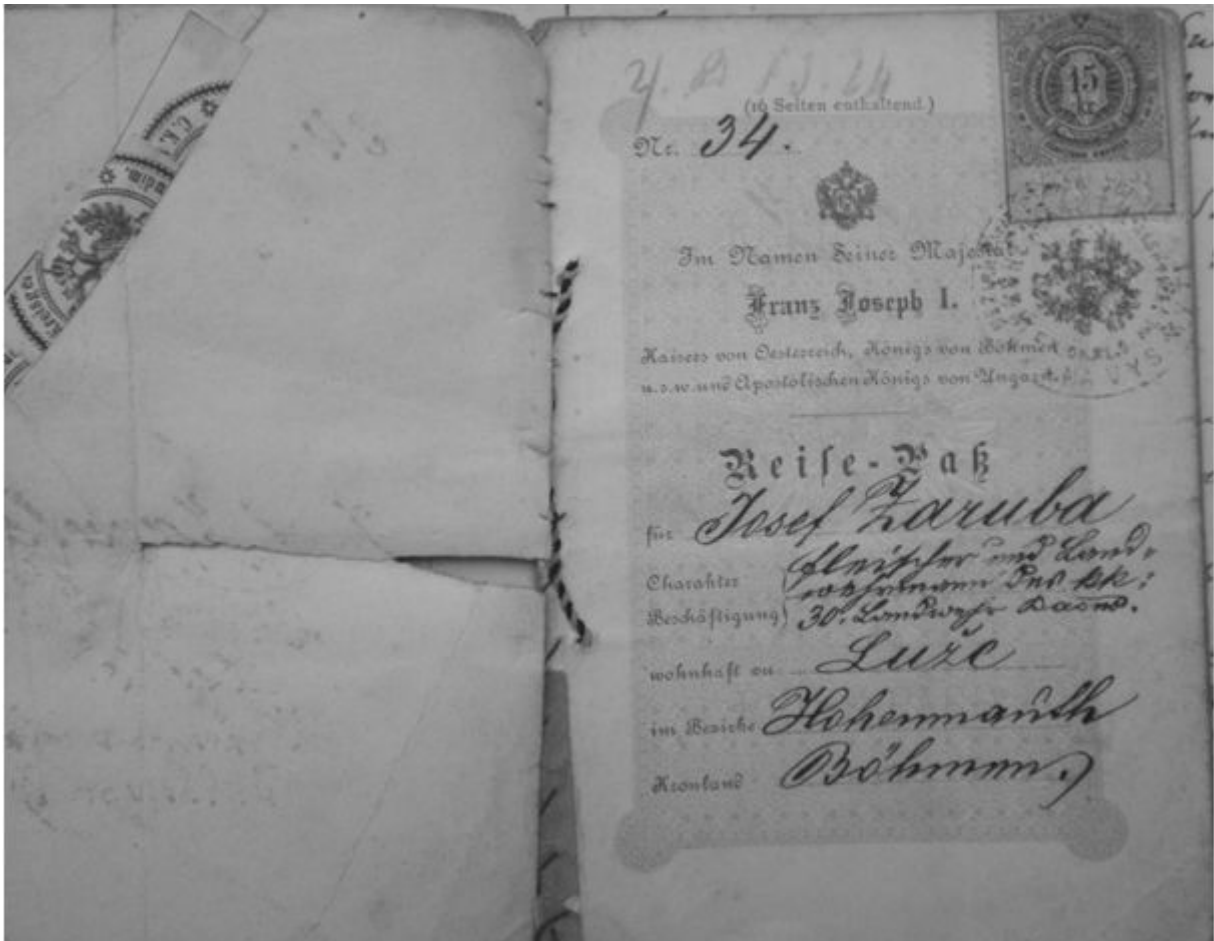 (16 Seiten enthaltend.)
Nr. 34.
15
kr
Im Namen Seiner Majestät
Franz Joseph I.
Kaisers von Oesterreich, Königs von Böhmen
u.s.w. und Apostolischen Königs von Ungarn.
Reise-Paß
für Josef Zaruba
Charakter
Fleischer und Land-
wehrmann des kk:
Beschäftigung
30. Landwehr Baons.
wohnhaft zu Luže
im Bezirke Hohenmauth
Kronland Böhmen.